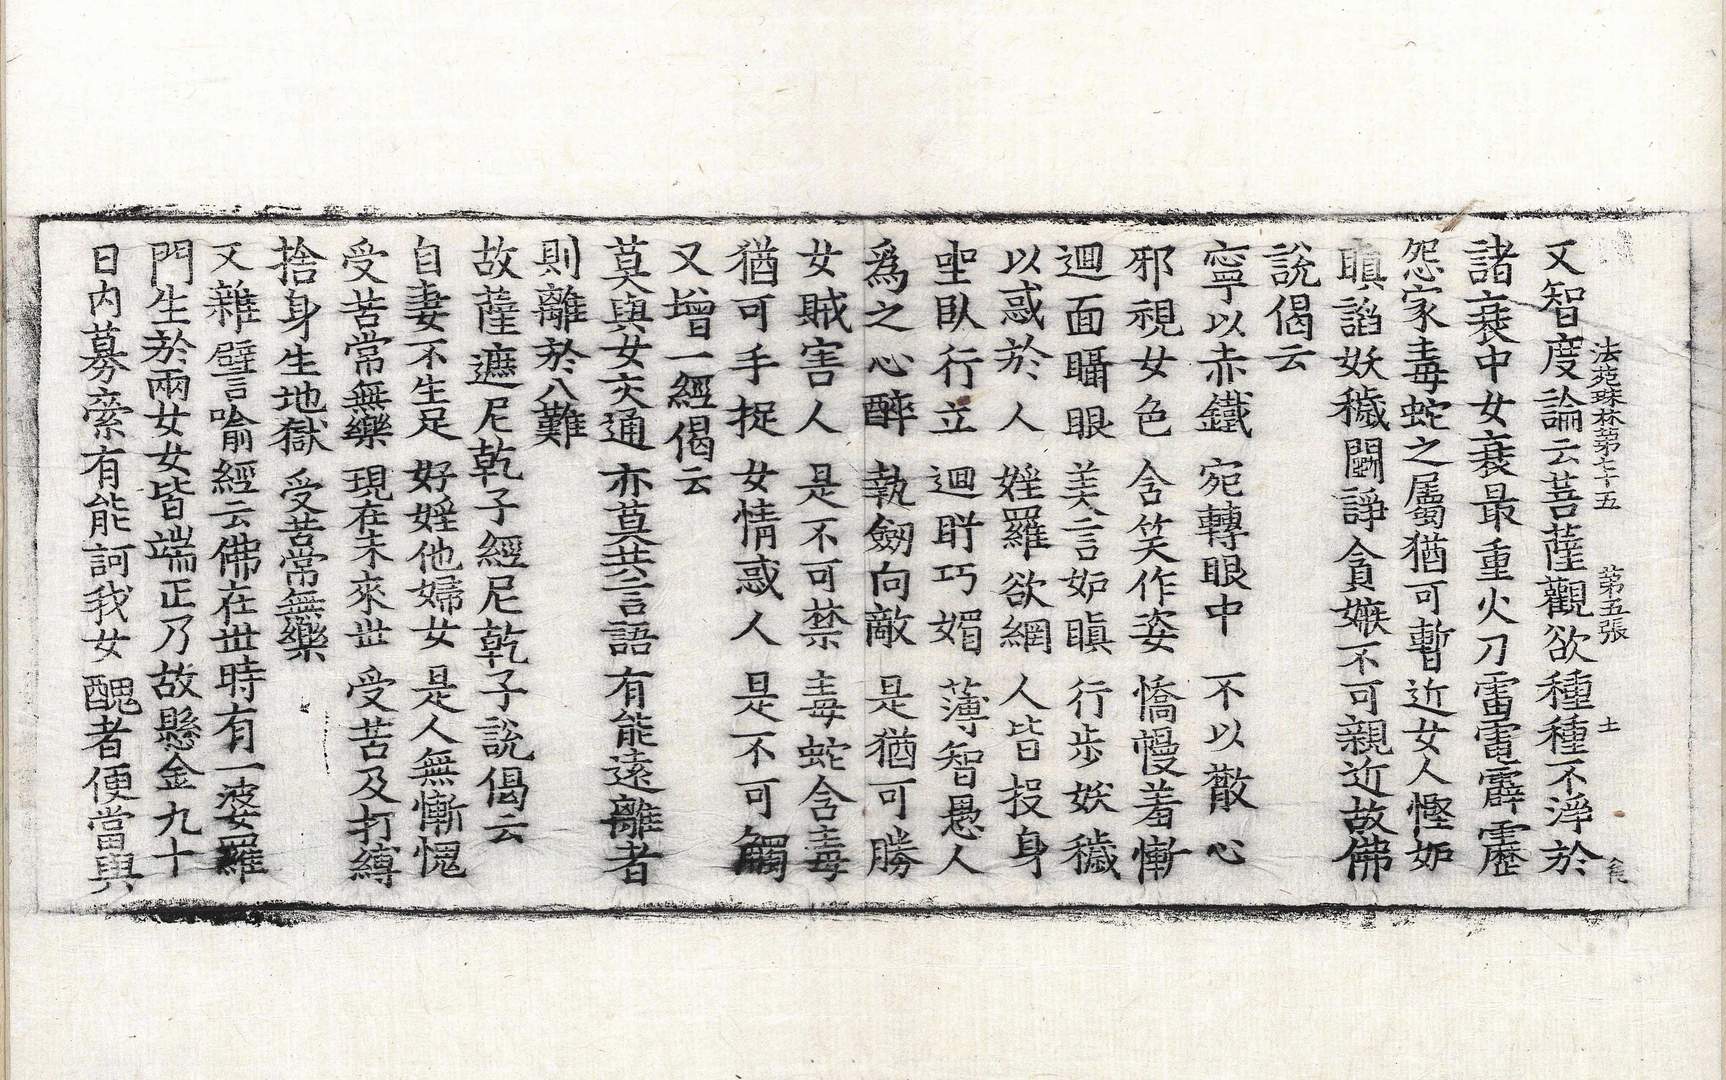 法苑珠林第七十五 第五張 土
又智度論云菩薩觀欲種種不淨於
諸衰中女衰最重火刀雷電霹靂
怨家毒蛇之屬猶可暫近女人慳妬
瞋謟妖穢鬪諍貪嫉不可親近故佛
說偈云
寧以赤鐵 宛轉眼中 不以散心
邪視女色 含笑作姿 憍慢羞慚
迴面攝眼 美言妬瞋 行步妖穢
以惑於人 婬羅欲網 人皆投身
坐臥行立 迴眄巧媚 薄智愚人
爲之心醉 執劒向敵 是猶可勝
女賊害人 是不可禁 毒蛇含毒
猶可手捉 女情惑人 是不可觸
又增一經偈云
莫與女交通 亦莫共言語 有能遠離者
則離於八難
故薩遮尼乾子經尼乾子說偈云
自妻不生足 好婬他婦女 是人無慚愧
受苦常無樂 現在未來世 受苦及打縛
捨身生地獄 受苦常無樂
又雜譬喻經云佛在世時有一婆羅
門生於兩女女皆端正乃故懸金九十
日內募索有能訶我女醜者便當與